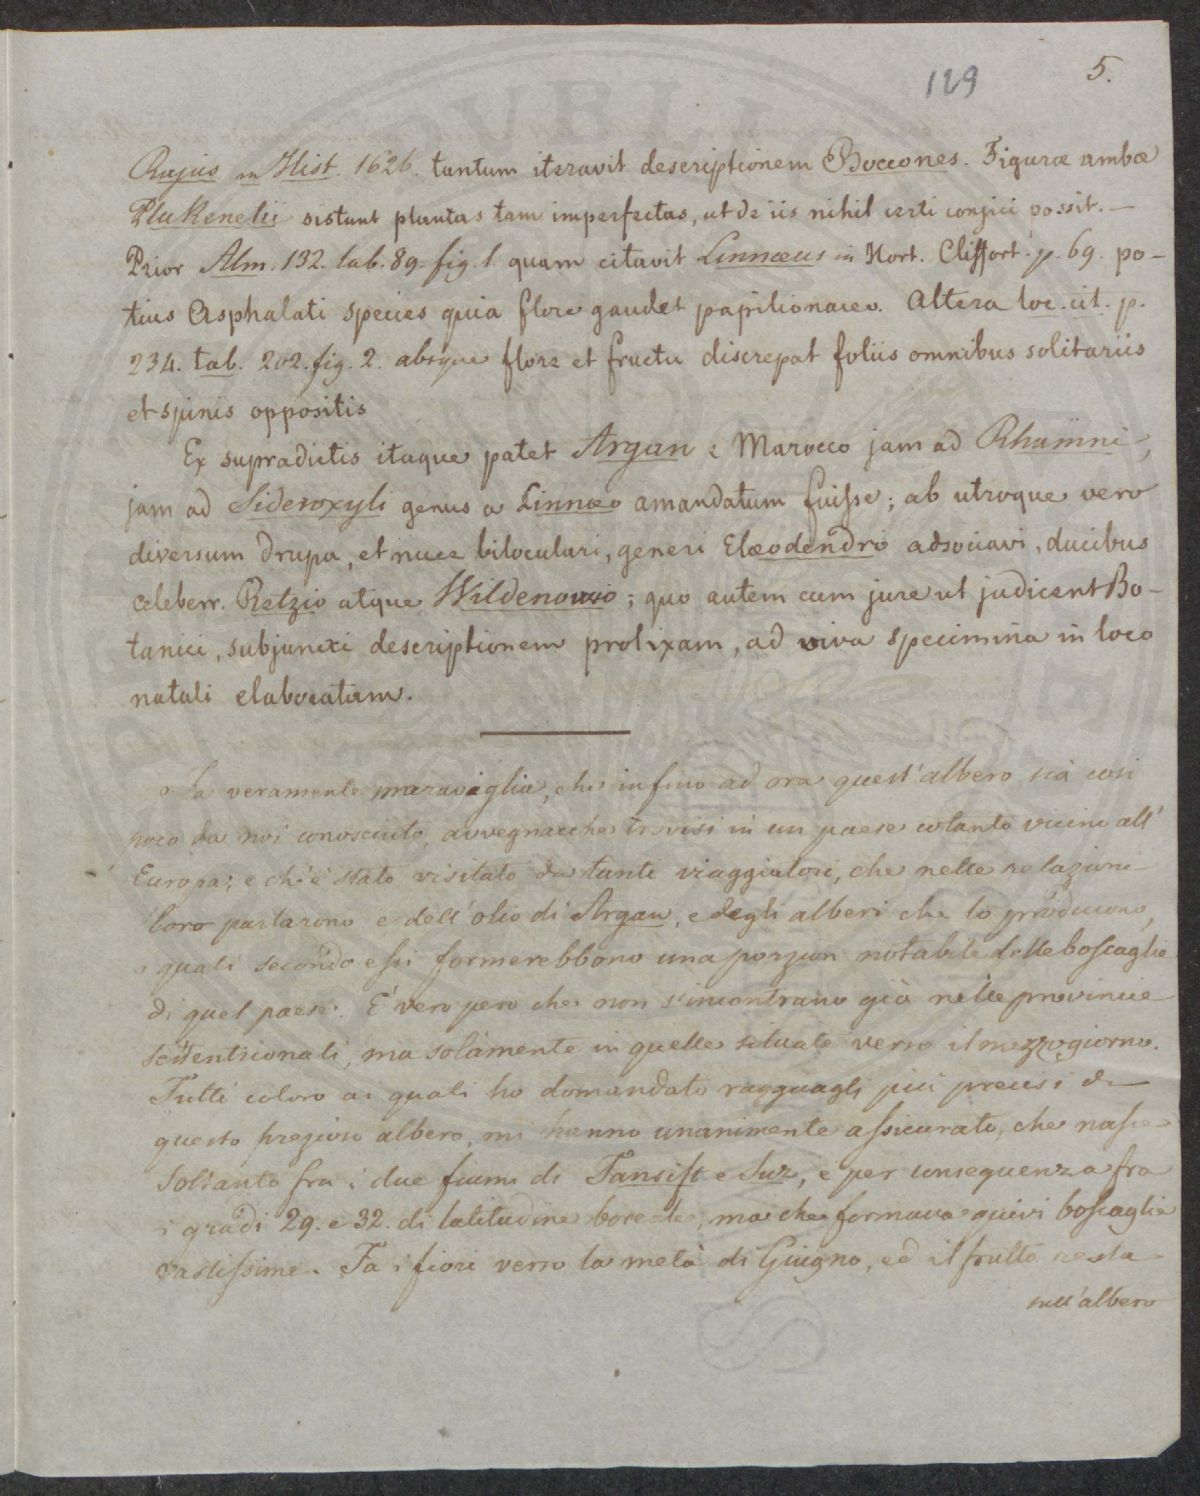 129 5.
Rajus in Hist. 1626. tantum iteravit descriptionem Boccones. Figuræ ambæ
Plukenetii sistunt plantas tam imperfectas, ut de iis nihil certi conjici possit. —
Prior Alm. 132. tab. 89. fig. 1 quam citavit Linnæus in Hort. Cliffort. p. 69. po-
tius Asphalati species quia flore gaudet papilionaceo. Altera loc. cit. p.
234. tab. 202. fig. 2. absque flore et fructu discrepat foliis omnibus solitariis
et spinis oppositis
Ex supradictis itaque patet Argan e Marocco jam ad Rhamni,
jam ad Sideroxyli genus a Linnæo amandatum fuisse; ab utroque vero
diversum drupa, et nuce biloculari, generi Elæodendro adsociavi, ducibus
celeberr. Retzio atque Wildenowio; quo autem cum jure ut judicent Bo-
tanici, subjunxi descriptionem prolixam, ad viva specimina in loco
natali elaboratam.
Fa veramente maraviglia, che infino ad ora quest'albero sia così
poco da noi conosciuto, avvegnacche trovisi in un paese cotanto vicino all'
Europa; e ch'è stato visitato da tanti viaggiatori, che nelle relazioni
loro parlarono e dell'olio di Argan, e degli alberi che lo producono,
i quali secondo essi formerebbono una porzion notabile delle boscaglie
di quel paese. E' vero pero che non s'incontrano già nelle provincie
settentrionali, ma solamente in quelle situate verso il mezzogiorno.
Tutti coloro ai quali ho domandato ragguagli più precisi di
questo prezioso albero, mi hanno unanimente assicurato, che nasce
soltanto fra i due fiumi di Tansift e Suz, e per conseguenza fra
i gradi 29. e 32. di latitudine boreale, ma che formava quivi boscaglie
vastissime. Fa i fiori verso la metà di Giugno, ed il frutto resta
sull'albero